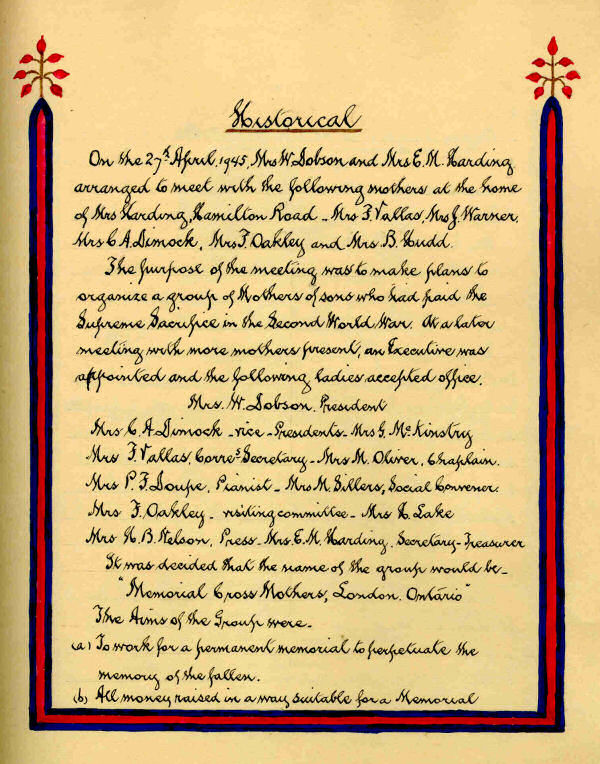 Historical
On the 27th April, 1945, Mrs W. Dobson and Mrs E. M. Harding
arranged to meet with the following mothers at the home
of Mrs Harding, Hamilton Road - Mrs F. Vallas, Mrs J. Warner,
Mrs C. A. Dimock, Mrs F. Oakley and Mrs. B. Hudd.
The purpose of the meeting was to make plans to
organize a group of Mothers of sons who had paid the
Supreme Sacrifice in the Second World War. At a later
meeting with more mothers present, an Executive was
appointed and the following ladies accepted office.
Mrs. W. Dobson. President
Mrs C. A. Dimock - vice - Presidents - Mrs G. McKinstry
Mrs F. Vallas, Corres Secretary - Mrs M. Oliver, Chaplain.
Mrs P. F. Doupe, Pianist - Mrs M. Sillers, Social Convener.
Mrs F. Oakley - visiting committee - Mrs H. Lake
Mrs H. B. Nelson, Press - Mrs. E. M. Harding. Secretary - Treasurer
It was decided that the name of the group would be -
"Memorial Cross Mothers, London. Ontario"
The Aims of the Group were -
(a) To work for a permanent memorial to perpetuate the
memory of the fallen.
(b) All money raised in a way suitable for a Memorial